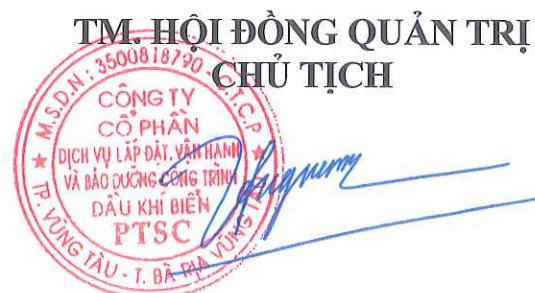 TM. HỘI ĐỒNG QUẢN TRỊ
CHỦ TỊCH
M.S.D.N: 3500818790 - C.T.C.P
CÔNG TY
CỔ PHẦN
DỊCH VỤ LẮP ĐẶT, VẬN HÀNH
VÀ BẢO DƯỠNG CÔNG TRÌNH
DẦU KHÍ BIỂN
PTSC
TP. VŨNG TÀU - T. BÀ RỊA VŨNG